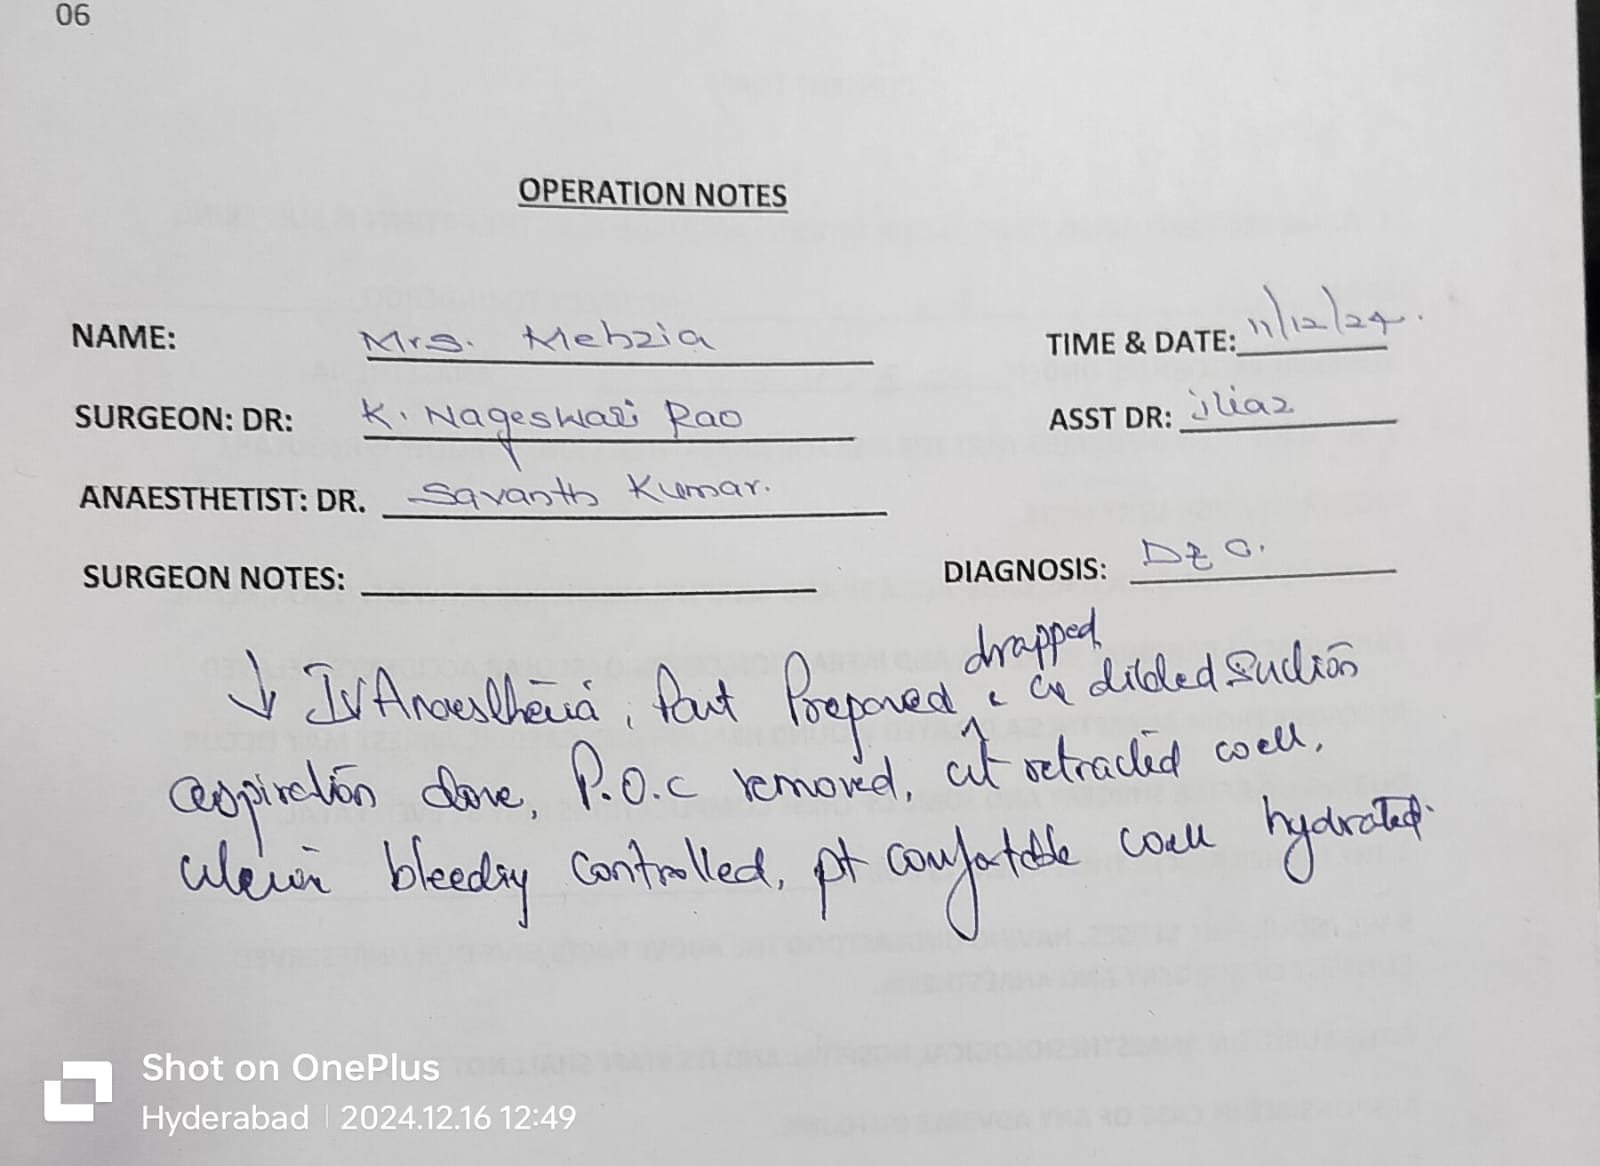 06
OPERATION NOTES
NAME: Mrs. Mehzia
TIME & DATE: 11/12/24.
SURGEON: DR: K. Nageswari Rao
ASST DR: iliaz
ANAESTHETIST: DR. Savanth Kumar.
SURGEON NOTES:
DIAGNOSIS: D & C.
drapped
↓ IV Anaesthesia, Part Prepared & Cx dilated Suction
aspiration done, P.O.C removed, ut retracted well,
uterine bleeding controlled, pt comfortable well hydrated.
Shot on OnePlus
Hyderabad | 2024.12.16 12:49